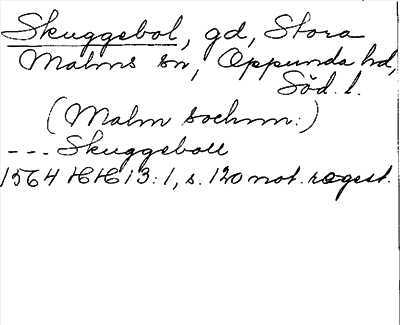 Skuggebol, gd, Stora
Malms sn, Oppunda hd,
Söd. l.
(Malm sochnn:)
--- Skuggeboll
1564 HH 13:1, s. 120 not. regest.